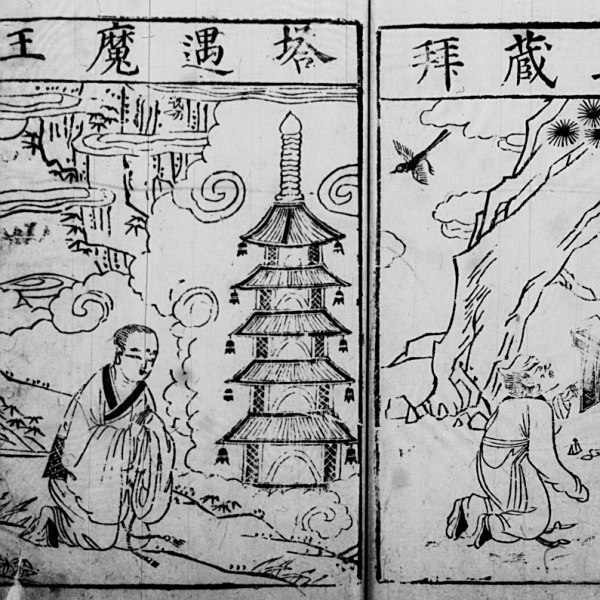 藏拜
塔遇魔王